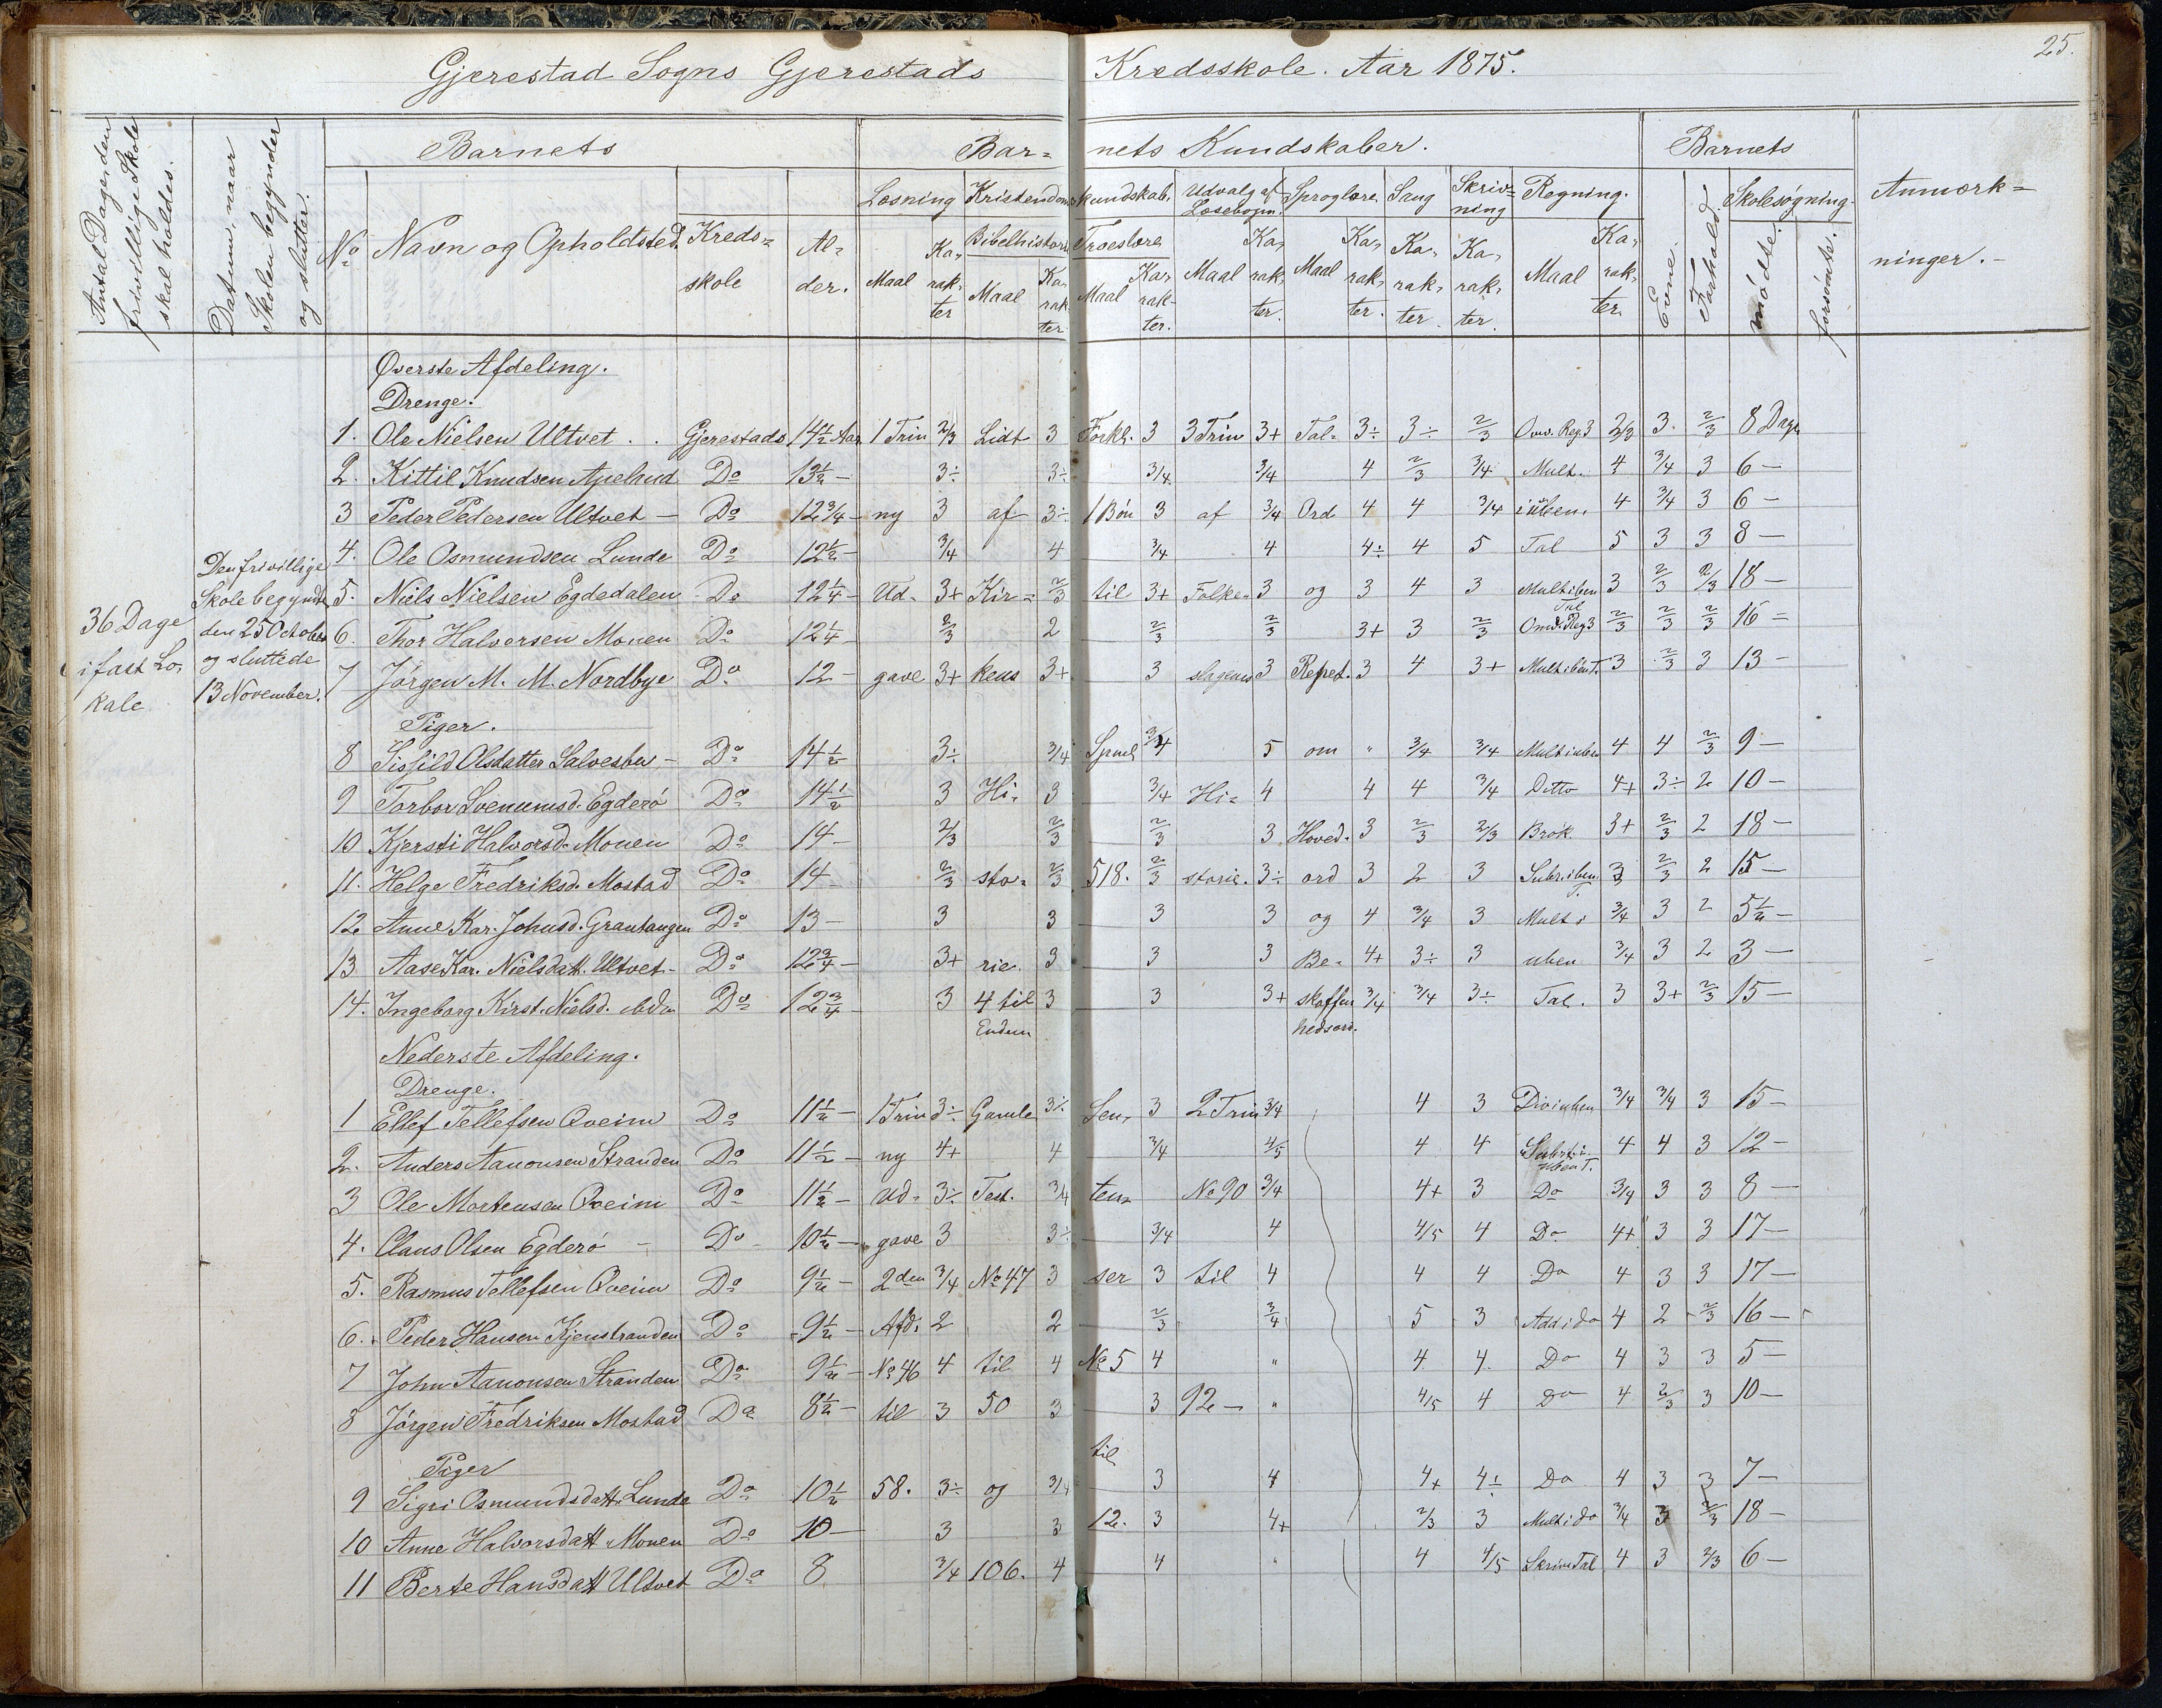 25.
Gjerestad Sogns Gjerestads Kredsskole. Aar 1875.
Antal Dage, den frivillige Skole skal holdes.
Datum, naar Skolen begynder og slutter.
Barnets
Bar= nets Kundskaber.
Barnets
Anmærk=
ninger.-
No Navn og Opholdsted. Kreds= skole Al= der.
Læsning Kristendoms kundskab. Udvalg af Læsebogen. Sproglære. Sang Skriv= ning Regning. Evne. Forhold. Skolesøgning.
Bibelhistorie Troeslære
Maal Ka- rak- ter Maal Ka- rak- ter Maal Ka- rak- ter. Maal Ka- rak- ter. Maal Ka- rak- ter. Ka- rak- ter. Ka- rak- ter. Maal Ka- rak- ter. mødte. forsømte.
36 Dage
i fast Lo-
kale
Den frivillige
Skole begyndte
den 25 October
og sluttede
13 November.
Øverste Afdeling.
Drenge.
1. Ole Nielsen Ultvet . . Gjerestads 14 1/2 Aar 1 Trin 2/3 Lidt 3 Forkl. 3 3 Trin 3+ Tal- 3÷ 3÷ 2/3 Omv. Reg. 3 2/3 3. 2/3 8 Dage
2. Kittil Knudsen Apelrud Do 13 1/2 - 3÷ 3÷ 3/4 3/4 4 2/3 3/4 Mult. 4 3/4 3 6 -
3 Peder Pedersen Ultvet - Do 12 3/4 - ny 3 af 3÷ 1 Bøn 3 af 3/4 Ord 4 4 3/4 i uben. 4 3/4 3 6 -
4. Ole Osmundsen Lunde Do 12 1/2 - 3/4 4 3/4 4 4÷ 4 5 Tal 5 3 3 8 -
5. Niels Nielsen Egdedalen Do 12 1/4 - Ud- 3+ Kir= 2/3 til 3+ Folke- 3 og 3 4 3 Mult i ben Tal 3 2/3 2/3 18 -
6. Thor Halvorsen Monen Do 12 1/4 2/3 2 2/3 2/3 3+ 3 2/3 Omv. Reg 3 2/3 2/3 2/3 16 =
7 Jørgen M. M. Nordbye Do 12 - gave 3+ kens 3+ 3 slagenes 3 Repet. 3 4 3+ Mult i ben T. 3 2/3 3 13 -
Piger.
8 Sigfild Olsdatter Salvesbu - Do 14 1/2 3÷ 3/4 3/4 5 om " 3/4 3/4 Mult i uben 4 4 2/3 9 -
9 Torbor Svenumsd. Egderø Do 14 1/2 3 Hi- 3 3/4 Hi= 4 4 4 3/4 Ditto 4+ 3÷ 2 10 -
10 Kjersti Halvorsd. Monen Do 14 - 2/3 2/3 2/3 3 Hoved- 3 2/3 2/3 Brøk 3+ 2/3 2 18 -
11. Helge Fredriksd. Mostad Do 14 - 2/3 sto- 2/3 518. 2/3 storie. 3÷ ord 3 2 3 Subr. i ben T. 3 2/3 2 15 -
12 Anne Kar. Johnsd. Grantangen Do 13 - 3 3 3 3 og 4 3/4 3 Mult i 3/4 3 2 5 1/2 -
13 Aase Kar. Nielsdatt. Ultvet - Do 12 3/4 - 3+ rie. 3 3 3 Be- 4+ 3÷ 3 uben 3/4 3 2 3 -
14. Ingeborg Kirst. Nielsd. ibdm Do 12 3/4 - 3 4 til Enden 3 3 3+ skaffen hedsord. 3/4 3/4 3÷ Tal. 3 3+ 2/3 15 -
Nederste Afdeling.
Drenge.
1 Ellef Tellefsen Qveim Do 11 1/2 - 1 Trin 3÷ Gamle 3÷ Sen- 3 2 Trin 3/4 4 3 Div i uben 3/4 3/4 3 15 -
2. Anders Aanonsen Stranden Do 11 1/2 - ny 4+ 4 3/4 4/5 4 4 Subtr. i uben T. 4 4 3 12 -
3 Ole Mortensen Qveim Do 11 1/2 - Ud- 3÷ Test. 3/4 ten- No 90 3/4 4+ 3 Do 3/4 3 3 8 -
4. Claus Olsen Egderø - Do 10 1/2 - gave 3 3÷ 3/4 4 4/5 4 Do 4+ 3 3 17 -
5. Rasmus Tellefsen Qveim Do 9 1/2 - 2den 3/4 No 47 3 ser 3 til 4 4 4 Do 4 3 3 17 -
6. Peder Hansen Kjenstranden Do 9 1/2 - Afd. 2 2 2/3 3/4 5 3 Add i do 4 2 2/3 16 -
7 John Aanonsen Stranden Do 9 1/2 - No 46 4 til 4 No 5 4 " 4 4 Do 4 3 3 5 -
8 Jørgen Fredriksen Mostad Do 8 1/2 - til 3 50 3 3 92 - " 4/5 4 Do 4 2/3 3 10 -
Piger
til
9 Sigri Osmundsdatt. Lunde Do 10 1/2 58. 3÷ og 3/4 3 4 4+ 4÷ Do 4 3 3 7 -
10 Anne Halvorsdatt. Monen Do 10 - 3 3 12. 3 4+ 2/3 3 Mult i do 3/4 3 2/3 18 -
11 Berte Hansdatt Ultvet Do 8 3/4 106. 4 4 " 4 4/5 Skrive Tal 4 3 2/3 6 -